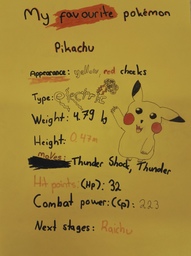 My favourite pokémon
Pikachu
Appearance: yellow, red cheeks
Type: electric
Weight: 4.79 lb
Height: 0.47m
Moves: Thunder Shock, Thunder
Hit points: (Hp): 32
Combat power: (Cp): 223
Next stages: Raichu